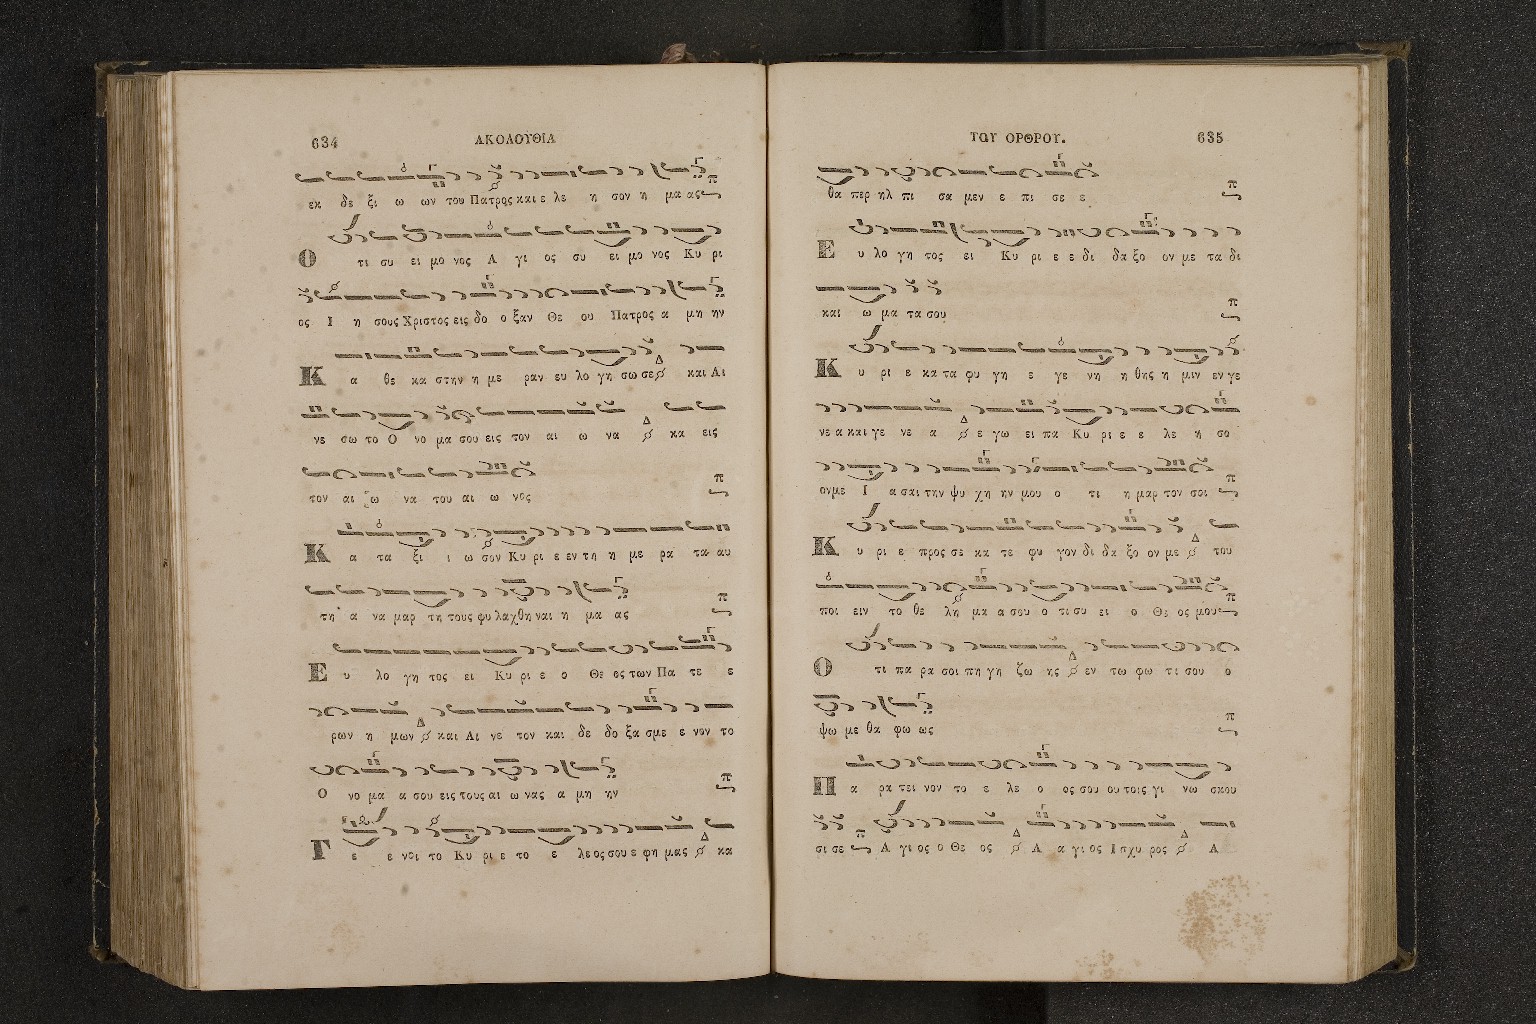 634 ΑΚΟΛΟΥΘΙΑ
εκ δε ξι ω ων του Πατρος και ε λε η σον η μα ας
Ο τι συ ει μο νος Α γι ος συ ει μο νος Κυ ρι
ος Ι η σους Χριστος εις δο ο ξαν Θε ου Πατρος α μη ην
Κ α θε κα στην η με ραν ευ λο γη σω σε και Αι
νε σω το Ο νο μα σου εις τον αι ω να κα εις
τον αι ω να του αι ω νος
Κ α τα ξι ι ω σον Κυ ρι ε εν τη η με ρα τα αυ
τη α να μαρ τη τους φυ λαχθη ναι η μα ας
Ε υ λο γη τος ει Κυ ρι ε ο Θε ος των Πα τε ε
ρων η μων και Αι νε τον και δε δο ξα σμε ε νον το
Ο νο μα α σου εις τους αι ω νας α μη ην
Γ ε ε νοι το Κυ ρι ε το ε λε ος σου ε φη μας κα
ΤΟΥ ΟΡΘΡΟΥ. 635
θα περ ηλ πι σα μεν ε πι σε ε
Ε υ λο γη τος ει Κυ ρι ε ε δι δα ξο ον με τα δι
και ω μα τα σου
Κ υ ρι ε κα τα φυ γη ε γε νη η θης η μιν εν γε
νε α και γε νε α ε γω ει πα Κυ ρι ε ε λε η σο
ον με Ι α σαι την ψυ χη ην μου ο τι η μαρ τον σοι
Κ υ ρι ε προς σε κα τε φυ γον δι δα ξο ον με του
ποι ειν το θε λη μα α σου ο τι συ ει ο Θε ος μου
Ο τι πα ρα σοι πη γη ζω ης εν τω φω τι σου ο
ψω με θα φω ως
Π α ρα τει νον το ε λε ο ος σου ου τοις γι νω σκου
σι σε Α γι ος ο Θε ος Α α γι ος Ισχυ ρος Α